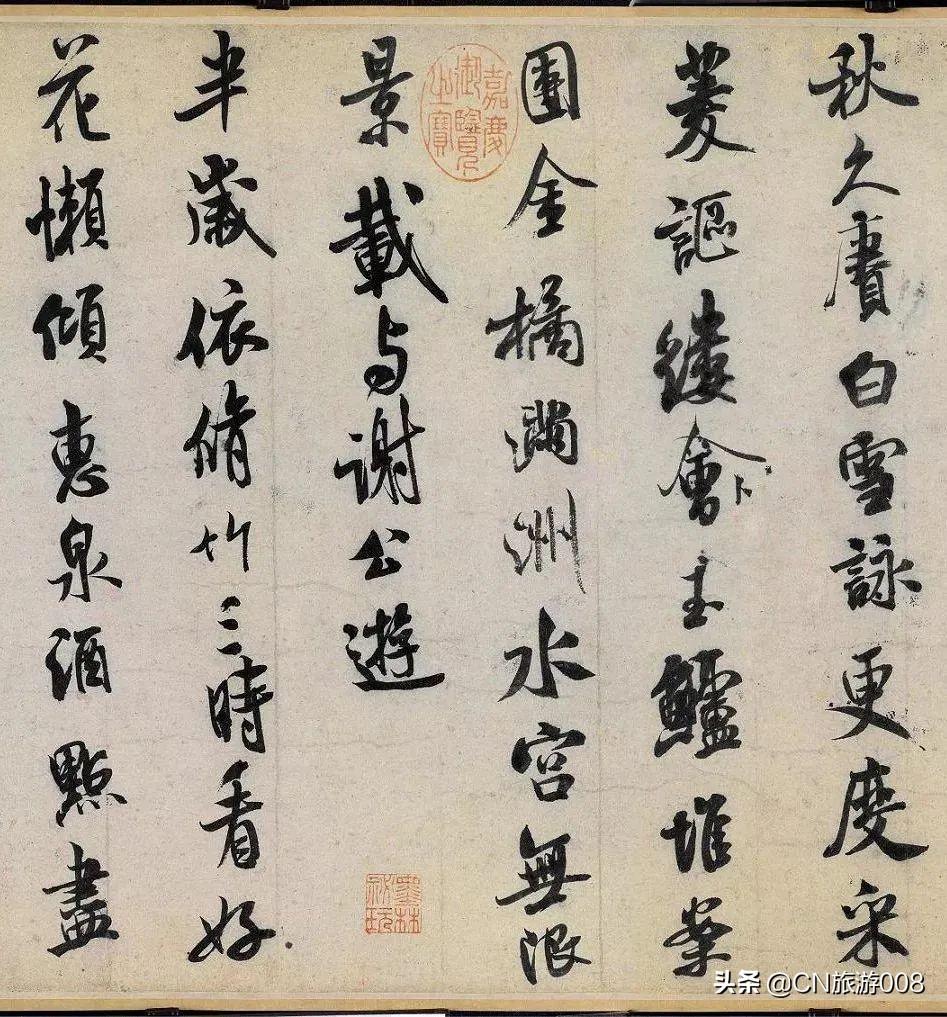 秋久賡白雪詠更度采
菱謳縷會玉鱸堆案
團金橘滿洲水宮無限
景載与謝公遊
半歲依脩竹三時看好
花懶傾惠泉酒點盡
嘉慶御覽之寶
墨林秘玩
头条 @CN旅游008